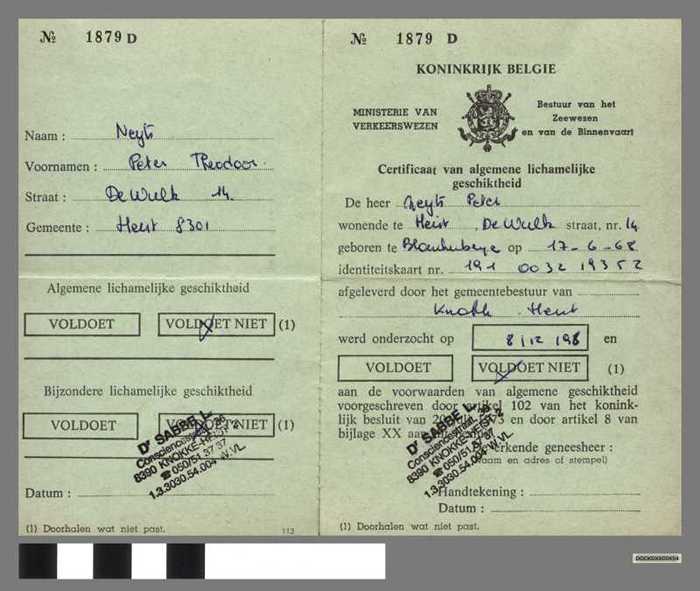 № 1879 D
Naam : Neyts
Voornamen : Peter Theodoor
Straat : De Wulk 14
Gemeente : Heist 8301
Algemene lichamelijke geschiktheid
VOLDOET VOLDOET NIET (1)
Bijzondere lichamelijke geschiktheid
VOLDOET VOLDOET NIET (1)
Dr SABBE L.
8390 KNOKKE-HEIST 2
☎ 050/51.37.37
1.3.3030.54.004 W.VL.
Datum :
(1) Doorhalen wat niet past.
113
№ 1879 D
KONINKRIJK BELGIE
MINISTERIE VAN
VERKEERSWEZEN
Bestuur van het
Zeewezen
en van de Binnenvaart
Certificaat van algemene lichamelijke
geschiktheid
De heer Neyts Peter
wonende te Heist De Wulk straat, nr. 14
geboren te Blankenberge op 17-6-68
identiteitskaart nr. 191 0032193 52
afgeleverd door het gemeentebestuur van
Knokke Heist
werd onderzocht op 8/12/198 en
VOLDOET VOLDOET NIET (1)
aan de voorwaarden van algemene geschiktheid
voorgeschreven door artikel 102 van het konink-
lijk besluit van 20 en door artikel 8 van
bijlage XX
De erkende geneesheer :
(Naam en adres of stempel)
Dr SABBE L.
8390 KNOKKE-HEIST 2
☎ 050/51.37.37
1.3.3030.54.004 W.VL.
Handtekening :
Datum :
(1) Doorhalen wat niet past.